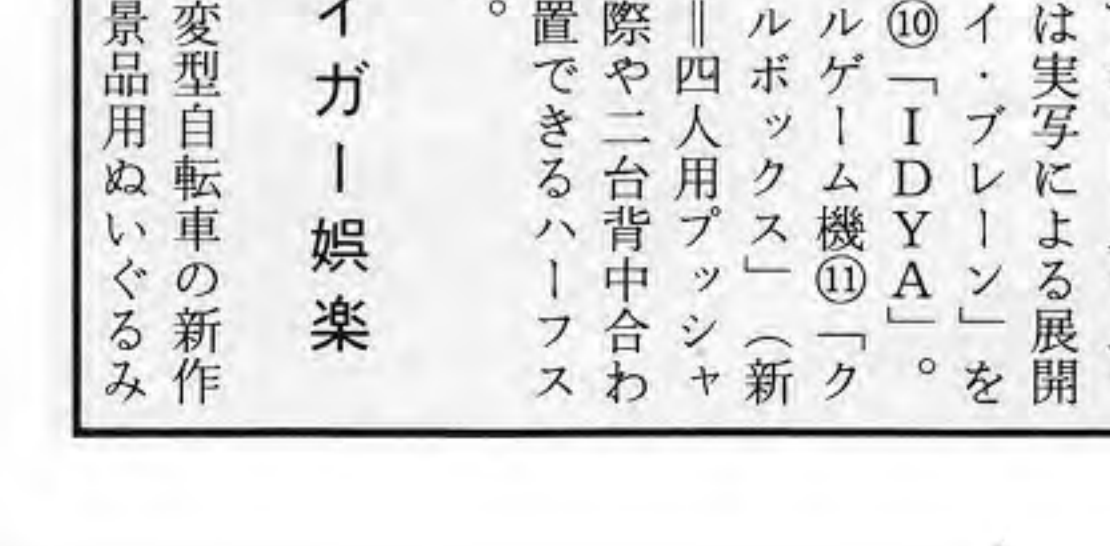 は実写による展開
イ・ブレーン」を
⑩「IDYA」。
ルゲーム機⑪「ク
ルボックス」(新
＝四人用プッシャ
際や二台背中合わ
置できるハーフス
。
イガー娯楽
変型自転車の新作
景品用ぬいぐるみ